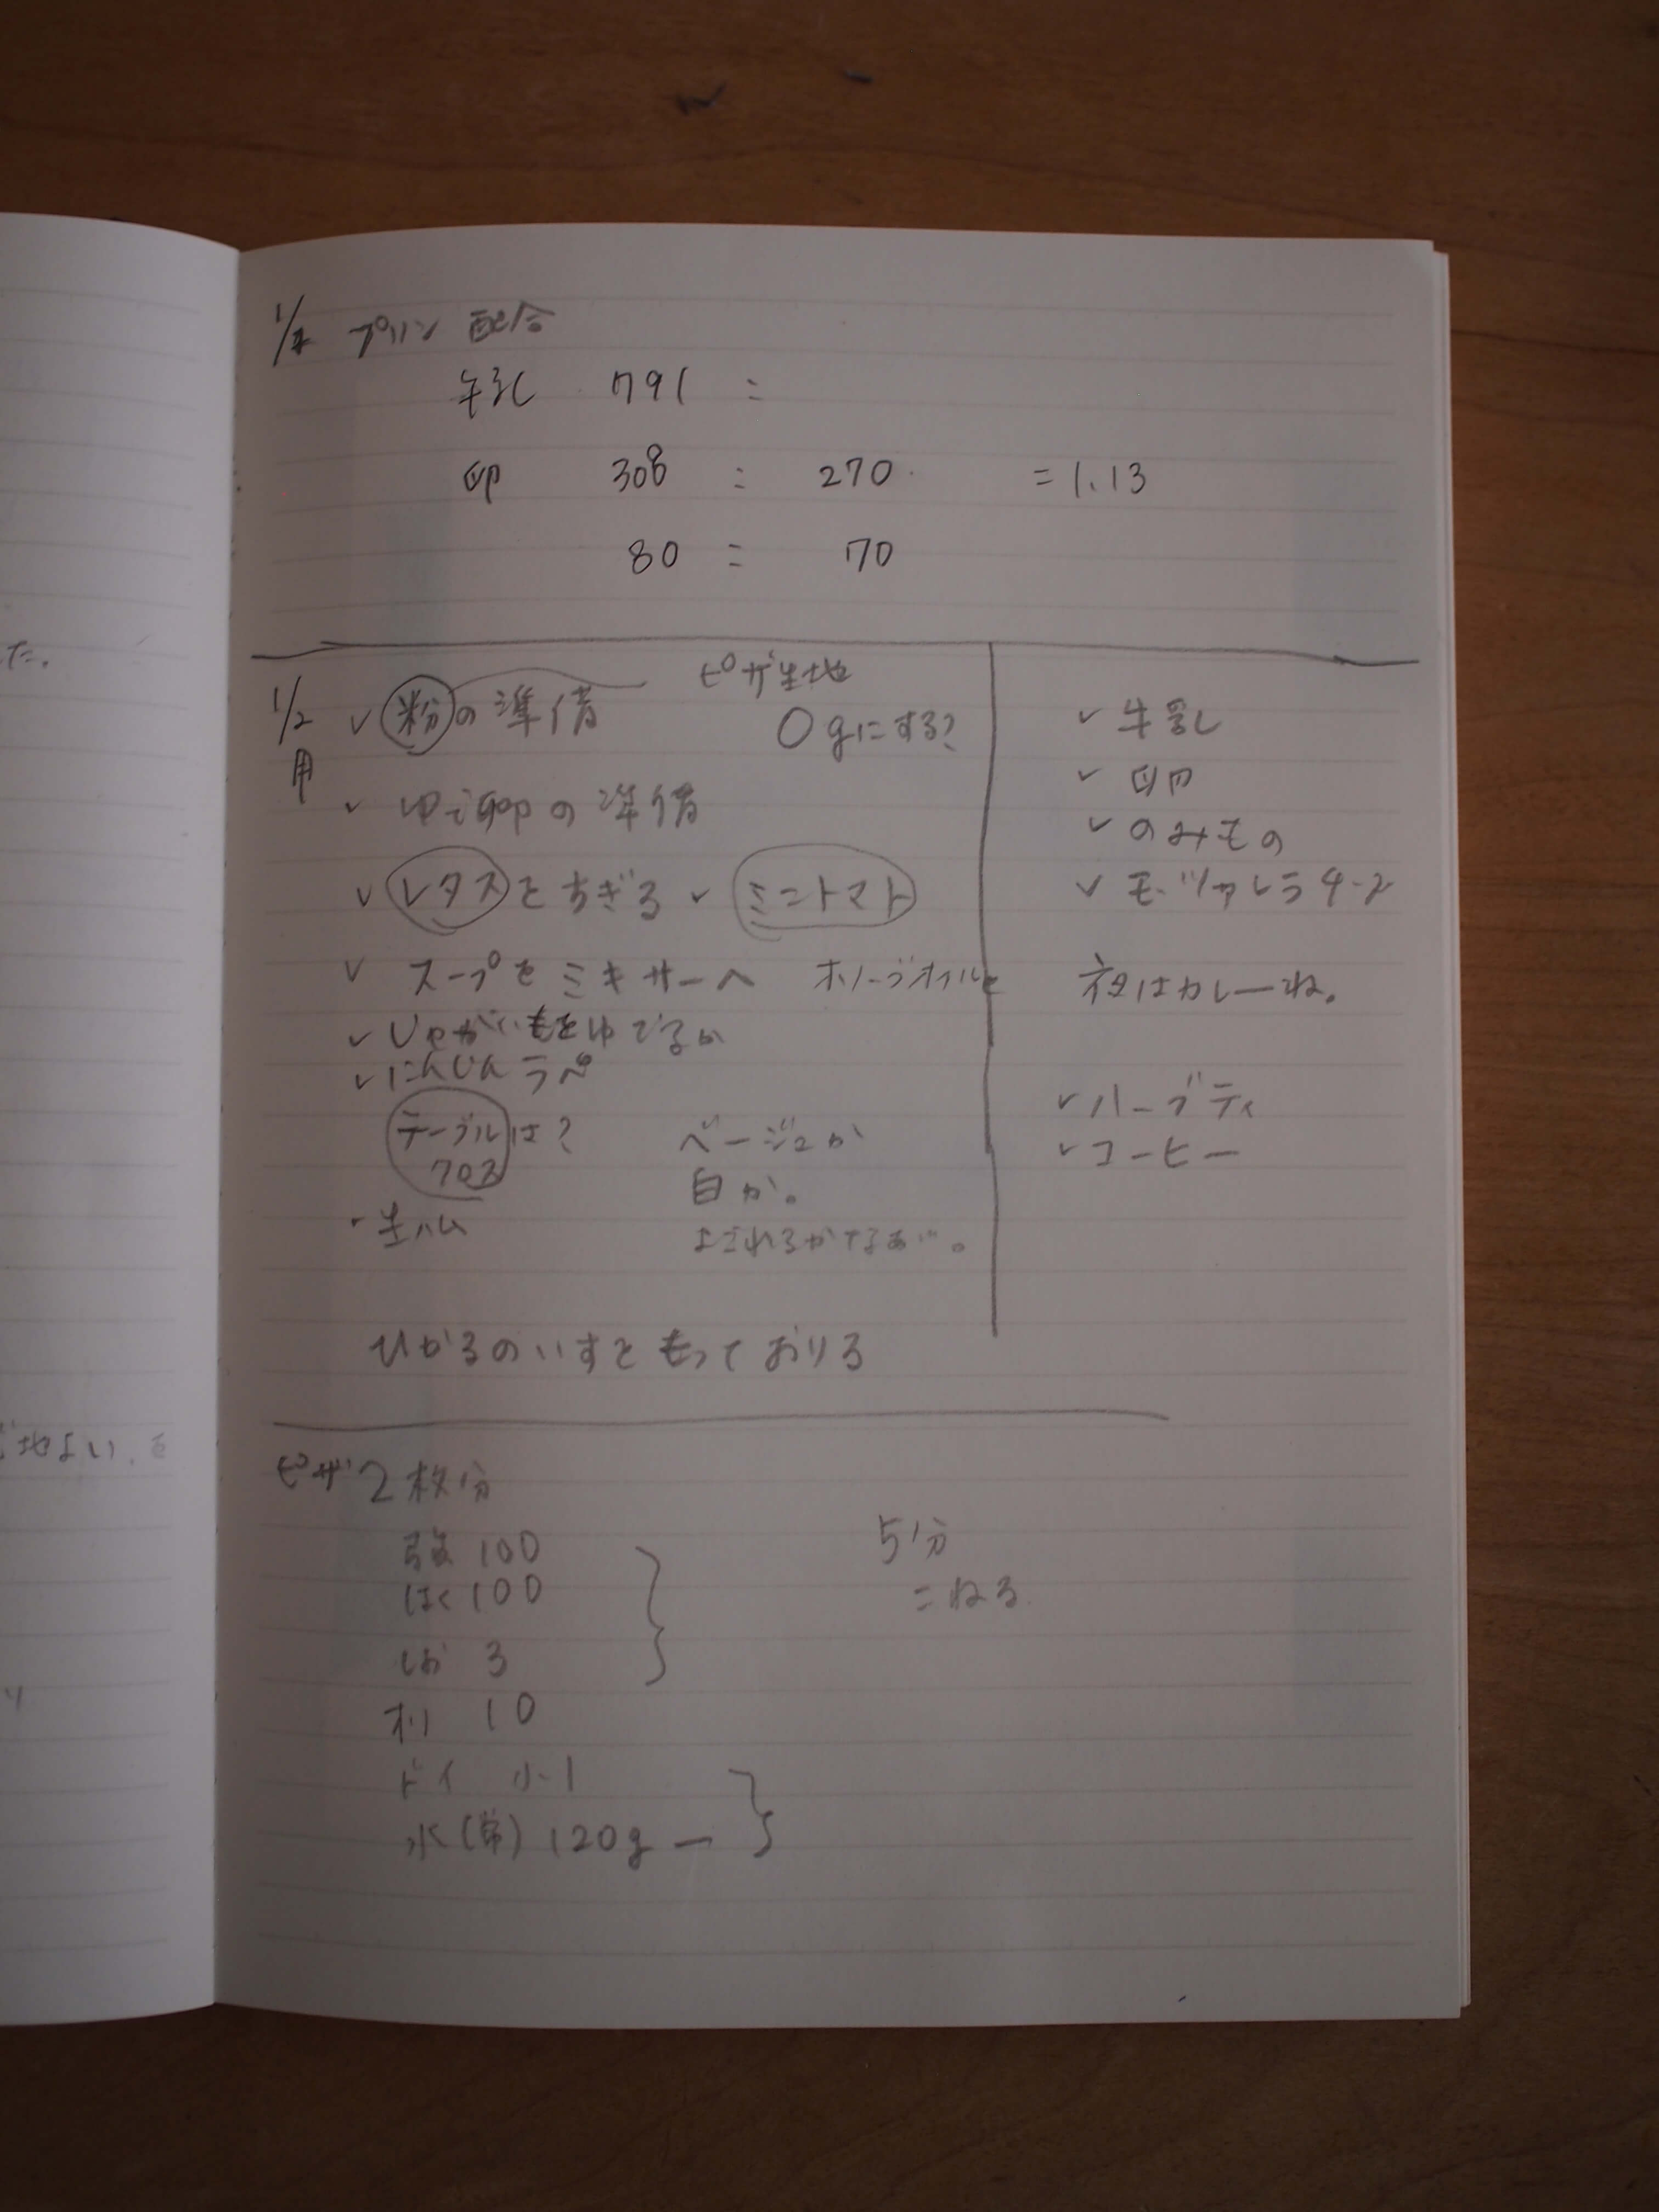 プリン 配合
牛乳 791 =
卵 308 : 270 = 1.13
80 = 70
1/2用
✓ 粉の準備
ピザ生地
0gにする?
✓ ゆで卵の準備
✓ レタスをちぎる ✓ ミニトマト
✓ スープをミキサーへ オリーブオイルと
✓ じゃがいもをゆでるか
✓ にんじんラペ
テーブルは?
クロス
ベージュか
白か。
よごれるかなあ。
・生ハム
ひかるのいすをもっておりる
✓ 牛乳
✓ 卵
✓ のみもの
✓ モッツァレラチーズ
夜はカレーね。
✓ ハーブティ
✓ コーヒー
ピザ2枚分
強 100
はく 100
しお 3
オリ 10
ドイ 小1
水(常) 120g
5分
こねる
た。
地よい、を